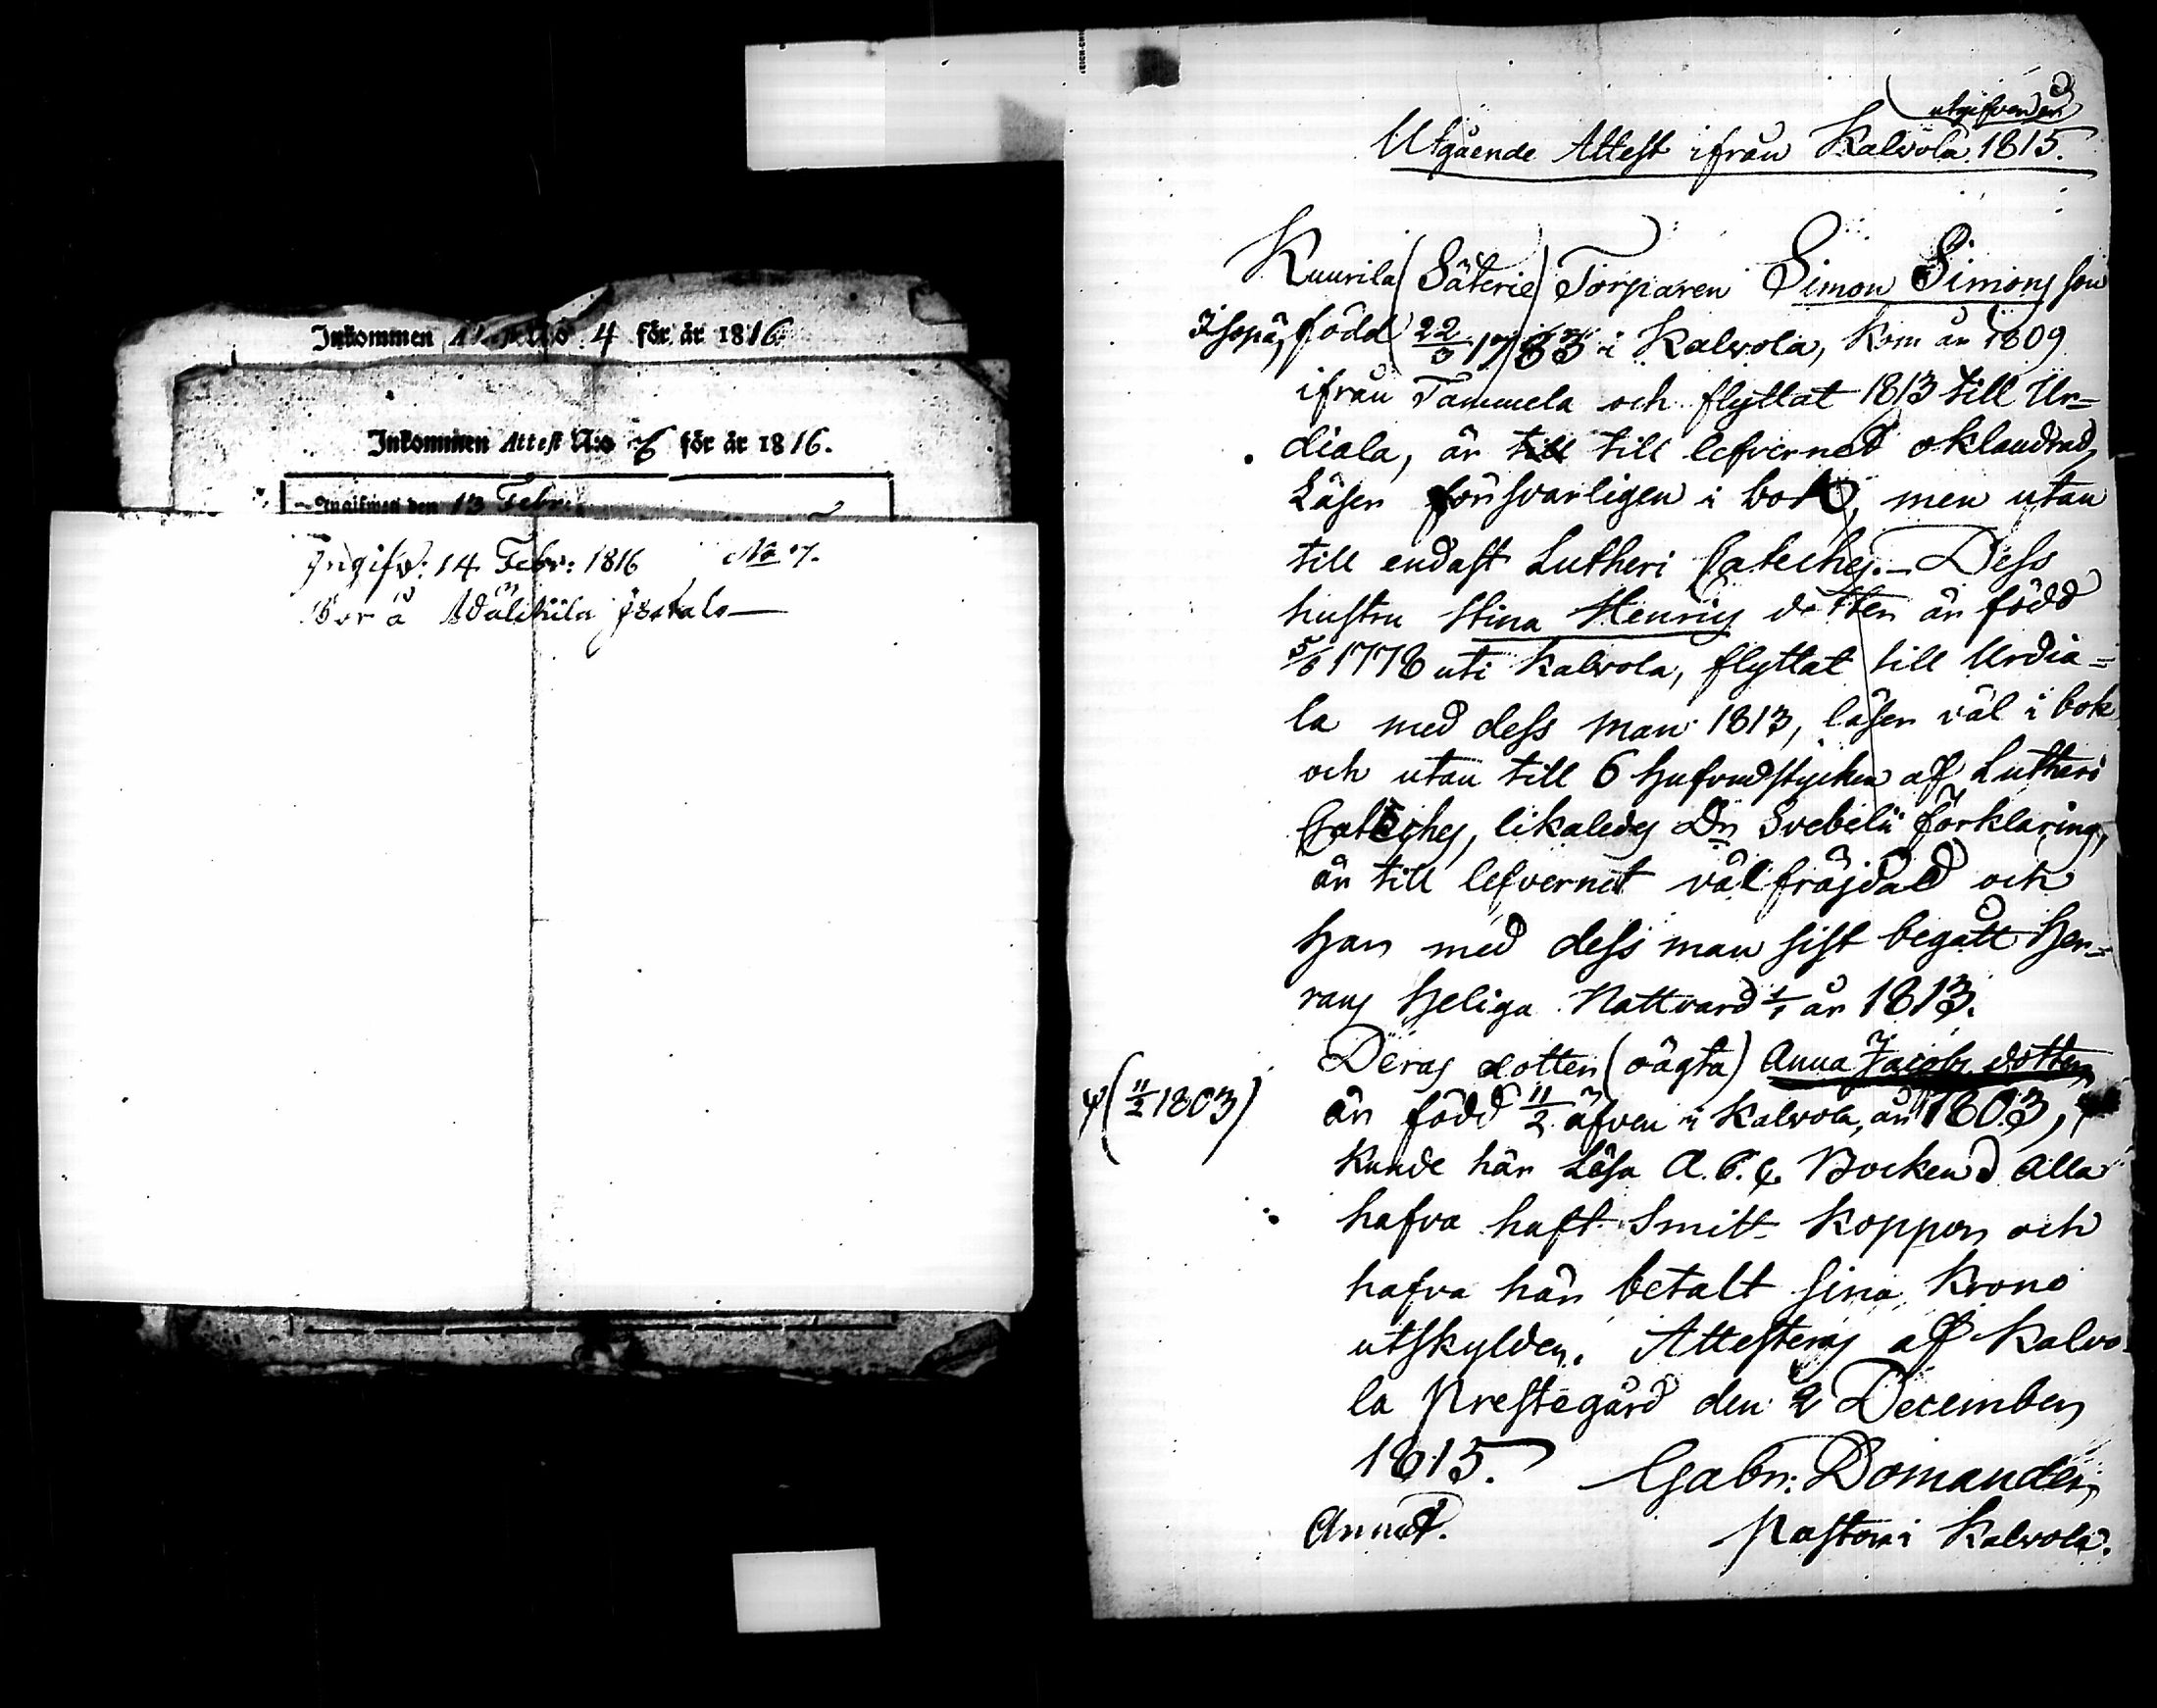 Inkommen Attest N:o 4 för år 1816.
Inkommen Attest N:o 6 för år 1816.
Ingifwen den 13 Febr:
Ingifv: 14 Febr: 1816 No 7.
Bor å
utgifven år
Utgående Attest ifrån Kalvola 1815.
Kuurila (Säterie) Torparen Simon Simonsson
född 22/3 1783 i Kalvola, kom år 1809
ifrån Tammela och flyttat 1813 till Ur=
diala, är till till lefvernet oklandrad,
Läser försvarligen i bok, men utan
till endast Lutheri Cateches. Dess
hustru Stina Henrics dotter är född
5/6 1778 uti Kalvola, flyttat till Urdia=
la med dess man 1813, läser väl i bok
och utan till 6 hufvudstycken af Lutheri
Cateches, likaledes Dr Svebelii förklaring,
är till lefvernet välfräjdad och
har med dess man sist begått Her=
rans Heliga Nattvard 1/1 år 1813.
Deras dotter (oägta) Anna Jacobs dotter
är född 11/2 äfven i Kalvola, år 1803,
(11/2 1803)
kunde här Läsa A.B.C. Bocken. Alla
hafva haft Smitt Koppor och
hafva här betalt sina Krono
utskylder. Attesteras af Kalvo
la Prestegård den 2 December
1815. Gabr: Domander,
Annot. Pastor i Kalvola.